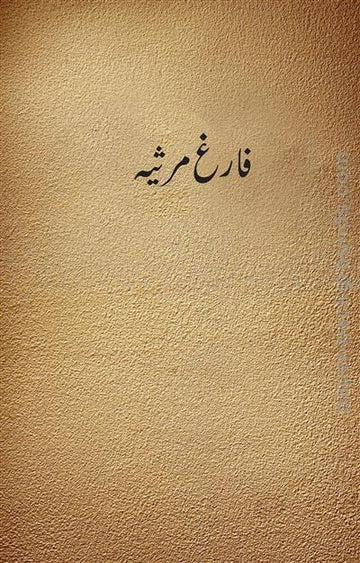 فارغ مرثیہ